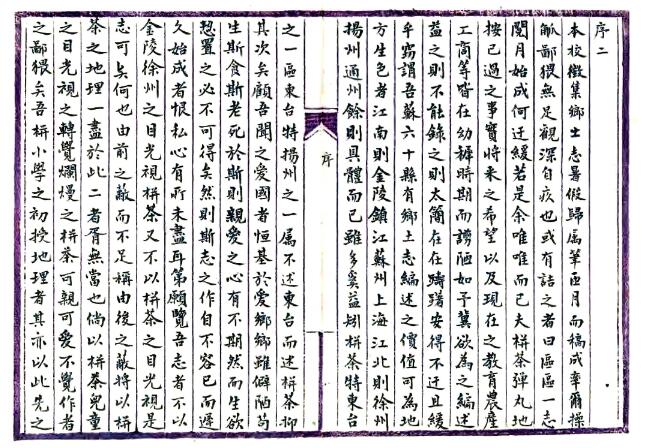 序二
本校徵集鄉土志暑假歸屬筆匝月而稿成率爾操
觚鄙猥無足觀深自疚也或有詰之者曰區區一志
閱月始成何迂緩若是余唯唯而已夫栟茶彈丸地
按已過之事實將來之希望以及現在之教育農產
工商等皆在幼穉時期而譾陋如予冀欲為之編述
益之則不能錄之則太簡在在躊躇安得不迂且緩
乎竊謂吾蘇六十縣有鄉土志編述之價值可為地
方生色者江南則金陵鎮江蘇州上海江北則徐州
揚州通州餘則具體而已雖多奚益矧栟茶特東台
序
之一區東台特揚州之一属不述東台而述栟茶抑
其次矣顧吾聞之愛國者恒基於愛鄉鄉雖僻陋苟
生斯食斯老死於斯則親愛之心有不期然而生欲
恝置之必不可得矣然則斯志之作自不容已而遲
久始成者恨私心有所未盡耳第願覽吾志者不以
金陵徐州之目光視栟茶又不以栟茶之目光視是
志可矣何也由前之蔽而不足稱由後之蔽將以栟
茶之地理一盡於此二者胥無當也倘以栟茶兒童
之目光視之轉覺爛熳之栟茶可親可愛不覺作者
之鄙猥矣吾栟小學之初授地理者其亦以此先之